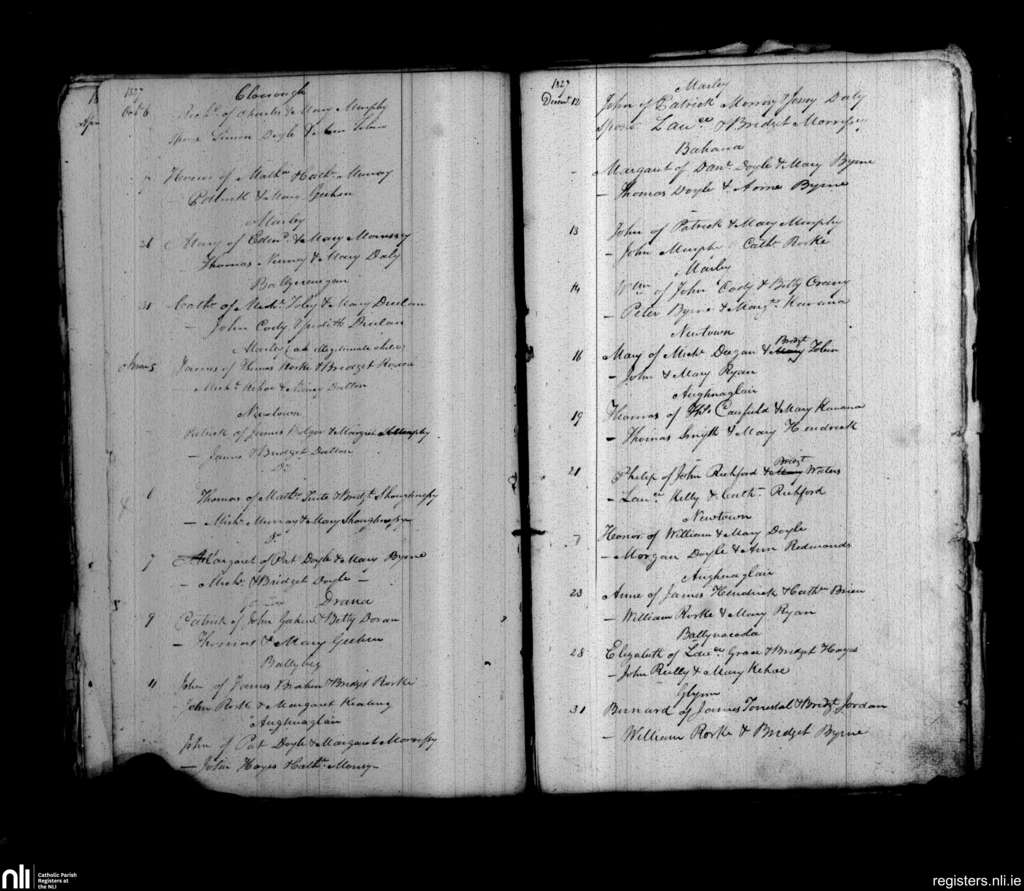 1827
Clowrough
Octb 6
of Charles & Mary Murphy
Spons Simon Doyle &
7 of Mathw & Cathn Murray
Patrick & Mary Geehan
Marley
26 Mary of Edmd & Mary Morrissy
Thomas Nunny & Mary Daly
31 Cathn of Michl Foley & Mary Deelan
– John Cody & Judith Phelan
Marley (an illegitimate child)
5 James of Thomas Rorke & Bridget
Michl Kehoe & Nancy Dalton
Newtown
Patrick of James Bolger & Margret Murphy
– James & Bridget Dalton
Do
6 Thomas of Mathw & Bridgt Shaughnesy
– Michl Murray & Mary Shaughnessy
Do
7 Margaret of Pat Doyle & Mary Byrne
– Michl & Bridget Doyle –
Drana
9 Patrick of John & Betty Doran
– Thomas & Mary Geehan
Ballybeg
11 John of James & Bridget Rorke
John Rorke & Margaret Keating
Aughnaglair
John of Pat Doyle & Margaret Morrissy
– John Hayes & Cathn
1827
Marley
Decemt 12 John of Patrick Morrow & Daly
Spons Lawce & Bridget Morrissy
Bahana
– Margaret of Danl Doyle & Mary Byrne
– Thomas Doyle & Anne Byrne
13 John of Patrick & Mary Murphy
– John Murphy Cathn Rorke
Marley
14 Wm of John Cody & Betty
– Peter Byrne & Margt Kavana
Newtown
Bridgt
16 Mary of Michl Deegan & Mary Tobin
– John & Mary Ryan
Aughnaglair
19 Thomas of Thos Caufield & Mary Kavana
– Thomas Smyth & Mary Hendrick
Bridgt
21 Philip of John Richford & Mary Waters
– Lawce Kelly & Cathn Richford
Newtown
Honor of William & Mary Doyle
– Morgan Doyle & Ann Redmonds
Aughnaglair
23 Anne of James Hendrick & Cathn Brien
– William Rorke & Mary Ryan
Ballynacoda
28 Elizabeth of Lawce Grace & Bridget Hayes
– John Reilly & Mary Kehoe
Glynn
31 Bernard of James Forrestal & Bridgt Jordan
– William Rorke & Bridget Byrne
nli
Catholic Parish
Registers at
the NLI
registers.nli.ie